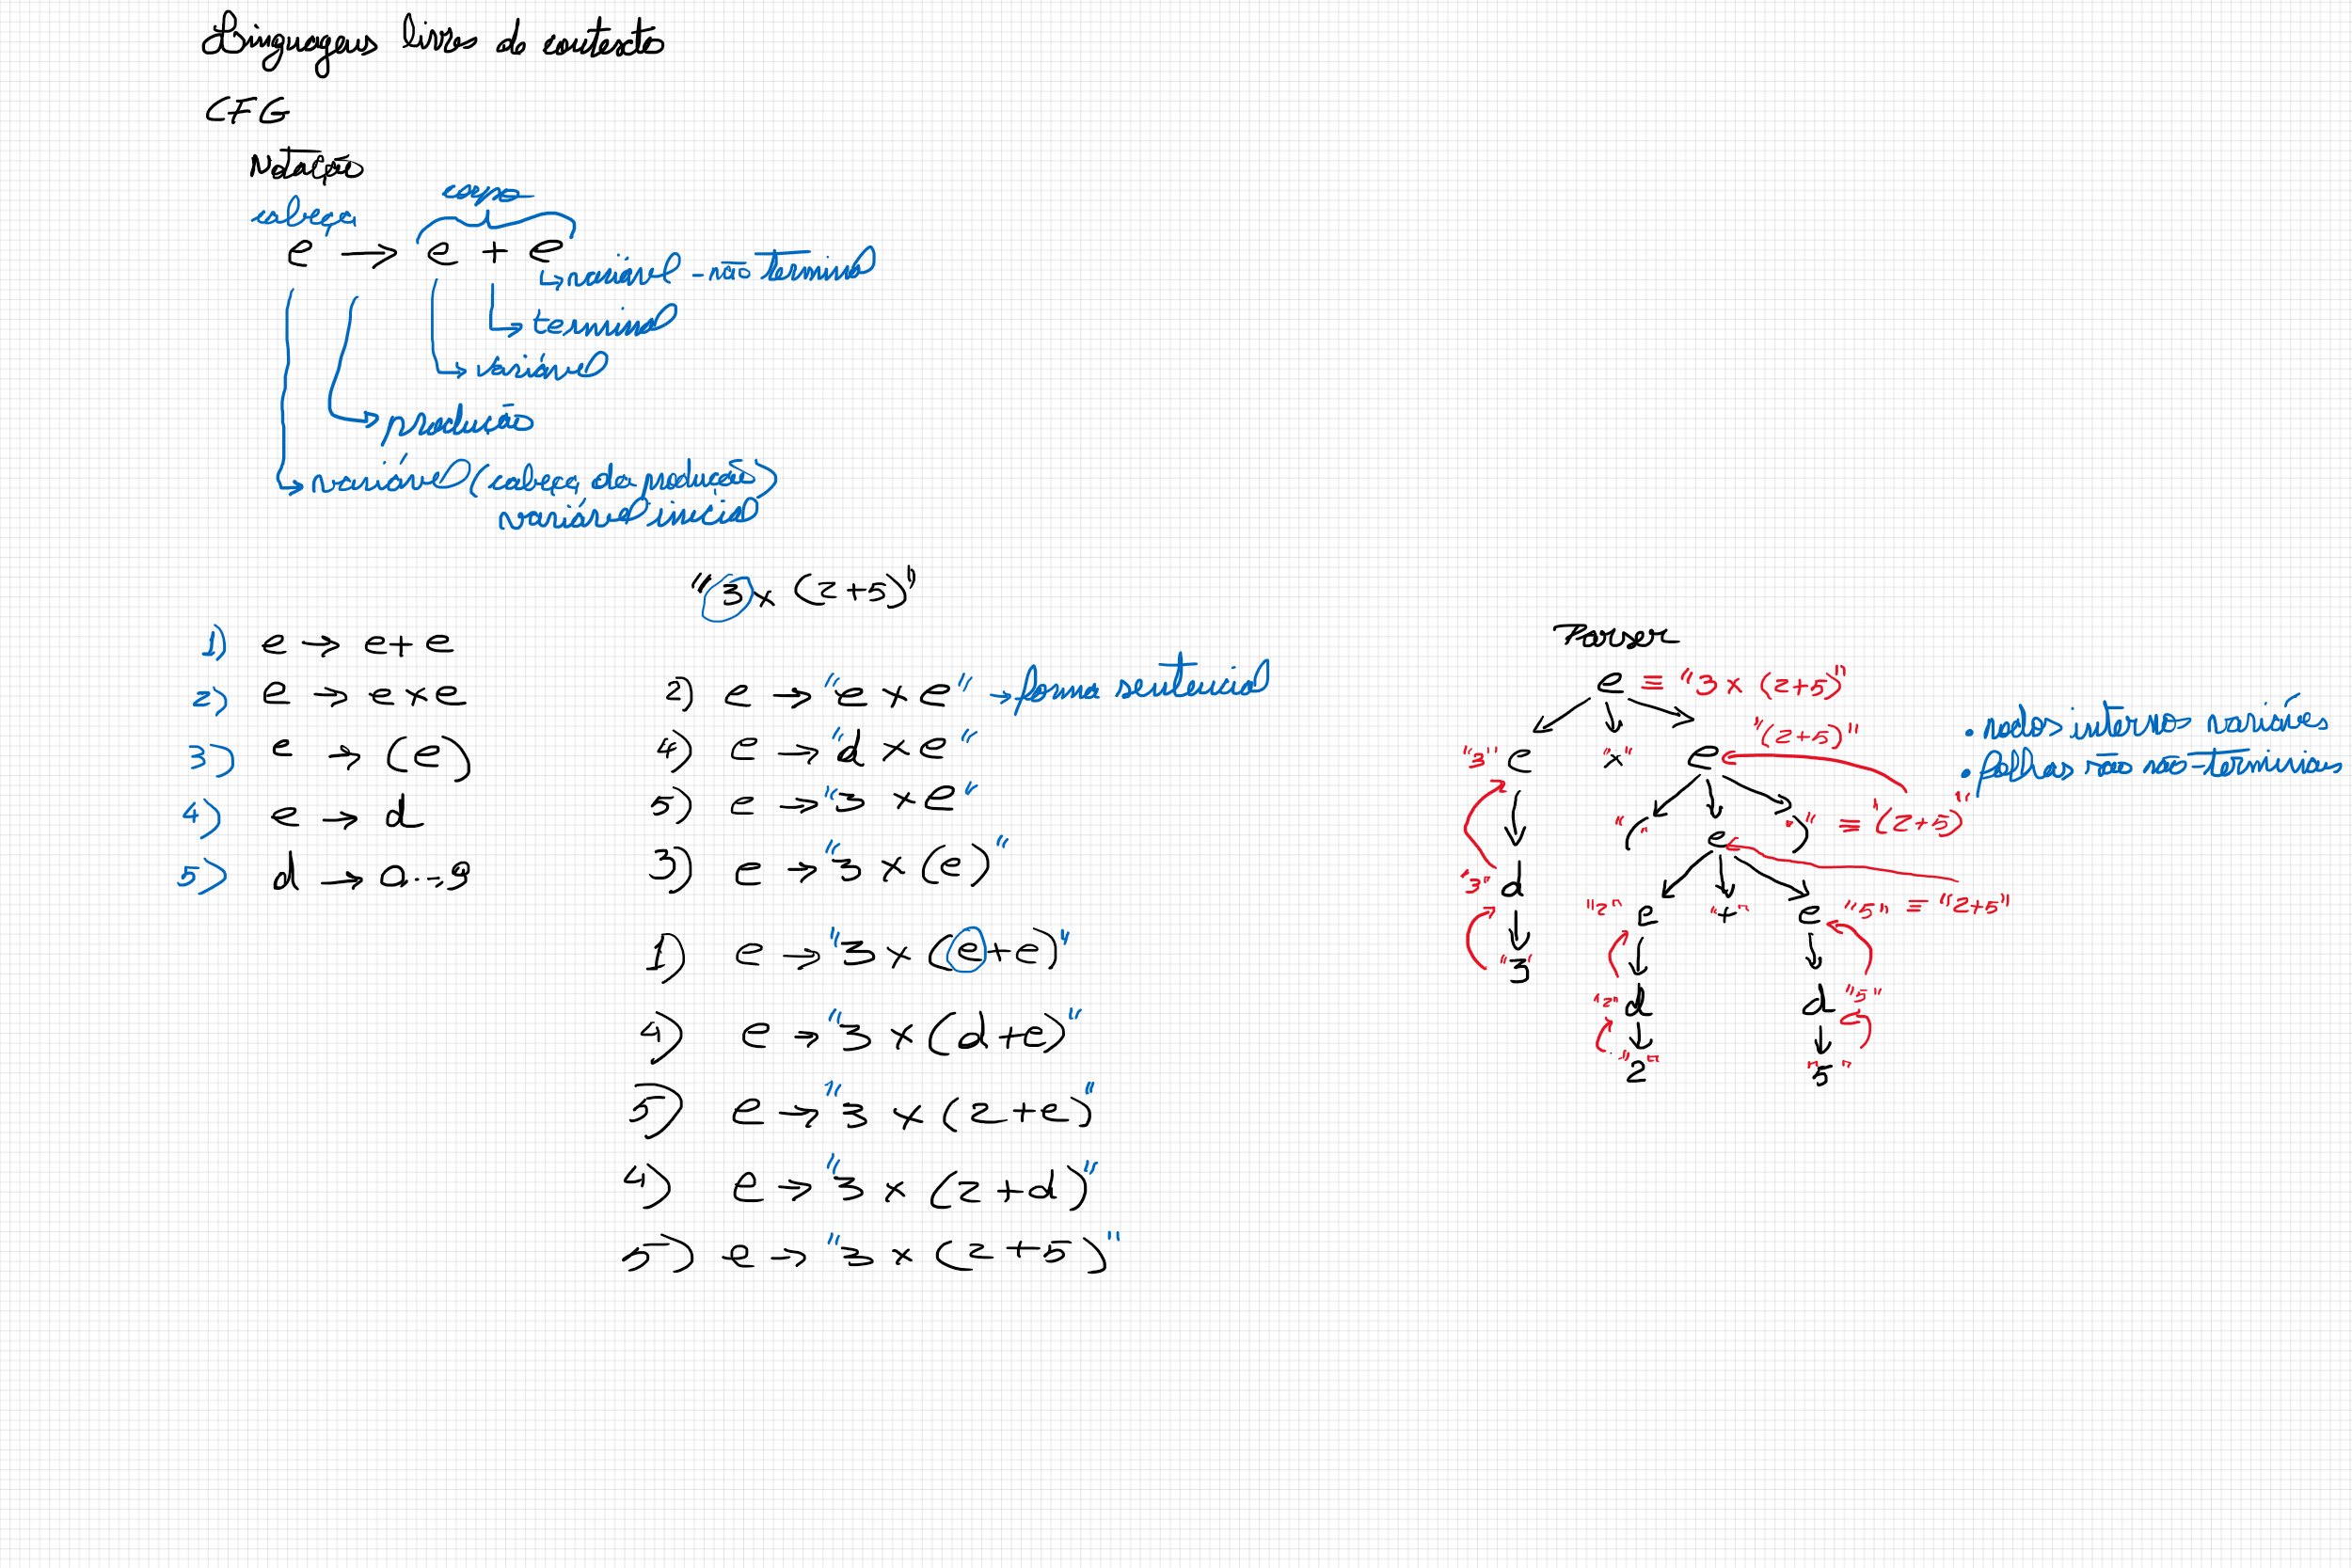 Linguagens livres de contexto
CFG
Notação
cabeça
corpo
e → e + e
↳ variável - não terminal
↳ terminal
↳ variável
↳ produção
↳ variável (cabeça da produção)
variável inicial
"3 × (2+5)"
1) e → e + e
2) e → e × e
3) e → (e)
4) e → d
5) d → 0...9
2) e → "e × e" → forma sentencial
4) e → "d × e"
5) e → "3 × e"
3) e → "3 × (e)"
1) e → "3 × (e+e)"
4) e → "3 × (d+e)"
5) e → "3 × (2+e)"
4) e → "3 × (2+d)"
5) e → "3 × (2+5)"
Parser
e ≡ "3 × (2+5)"
"3" e "×" e "(2+5)"
"(" e ")" ≡ "(2+5)"
"3" d
"2" e "+" e "5" ≡ "2+5"
"3"
"2" d d "5"
"2" "5"
• nodos internos variáveis
• folhas não não-terminais